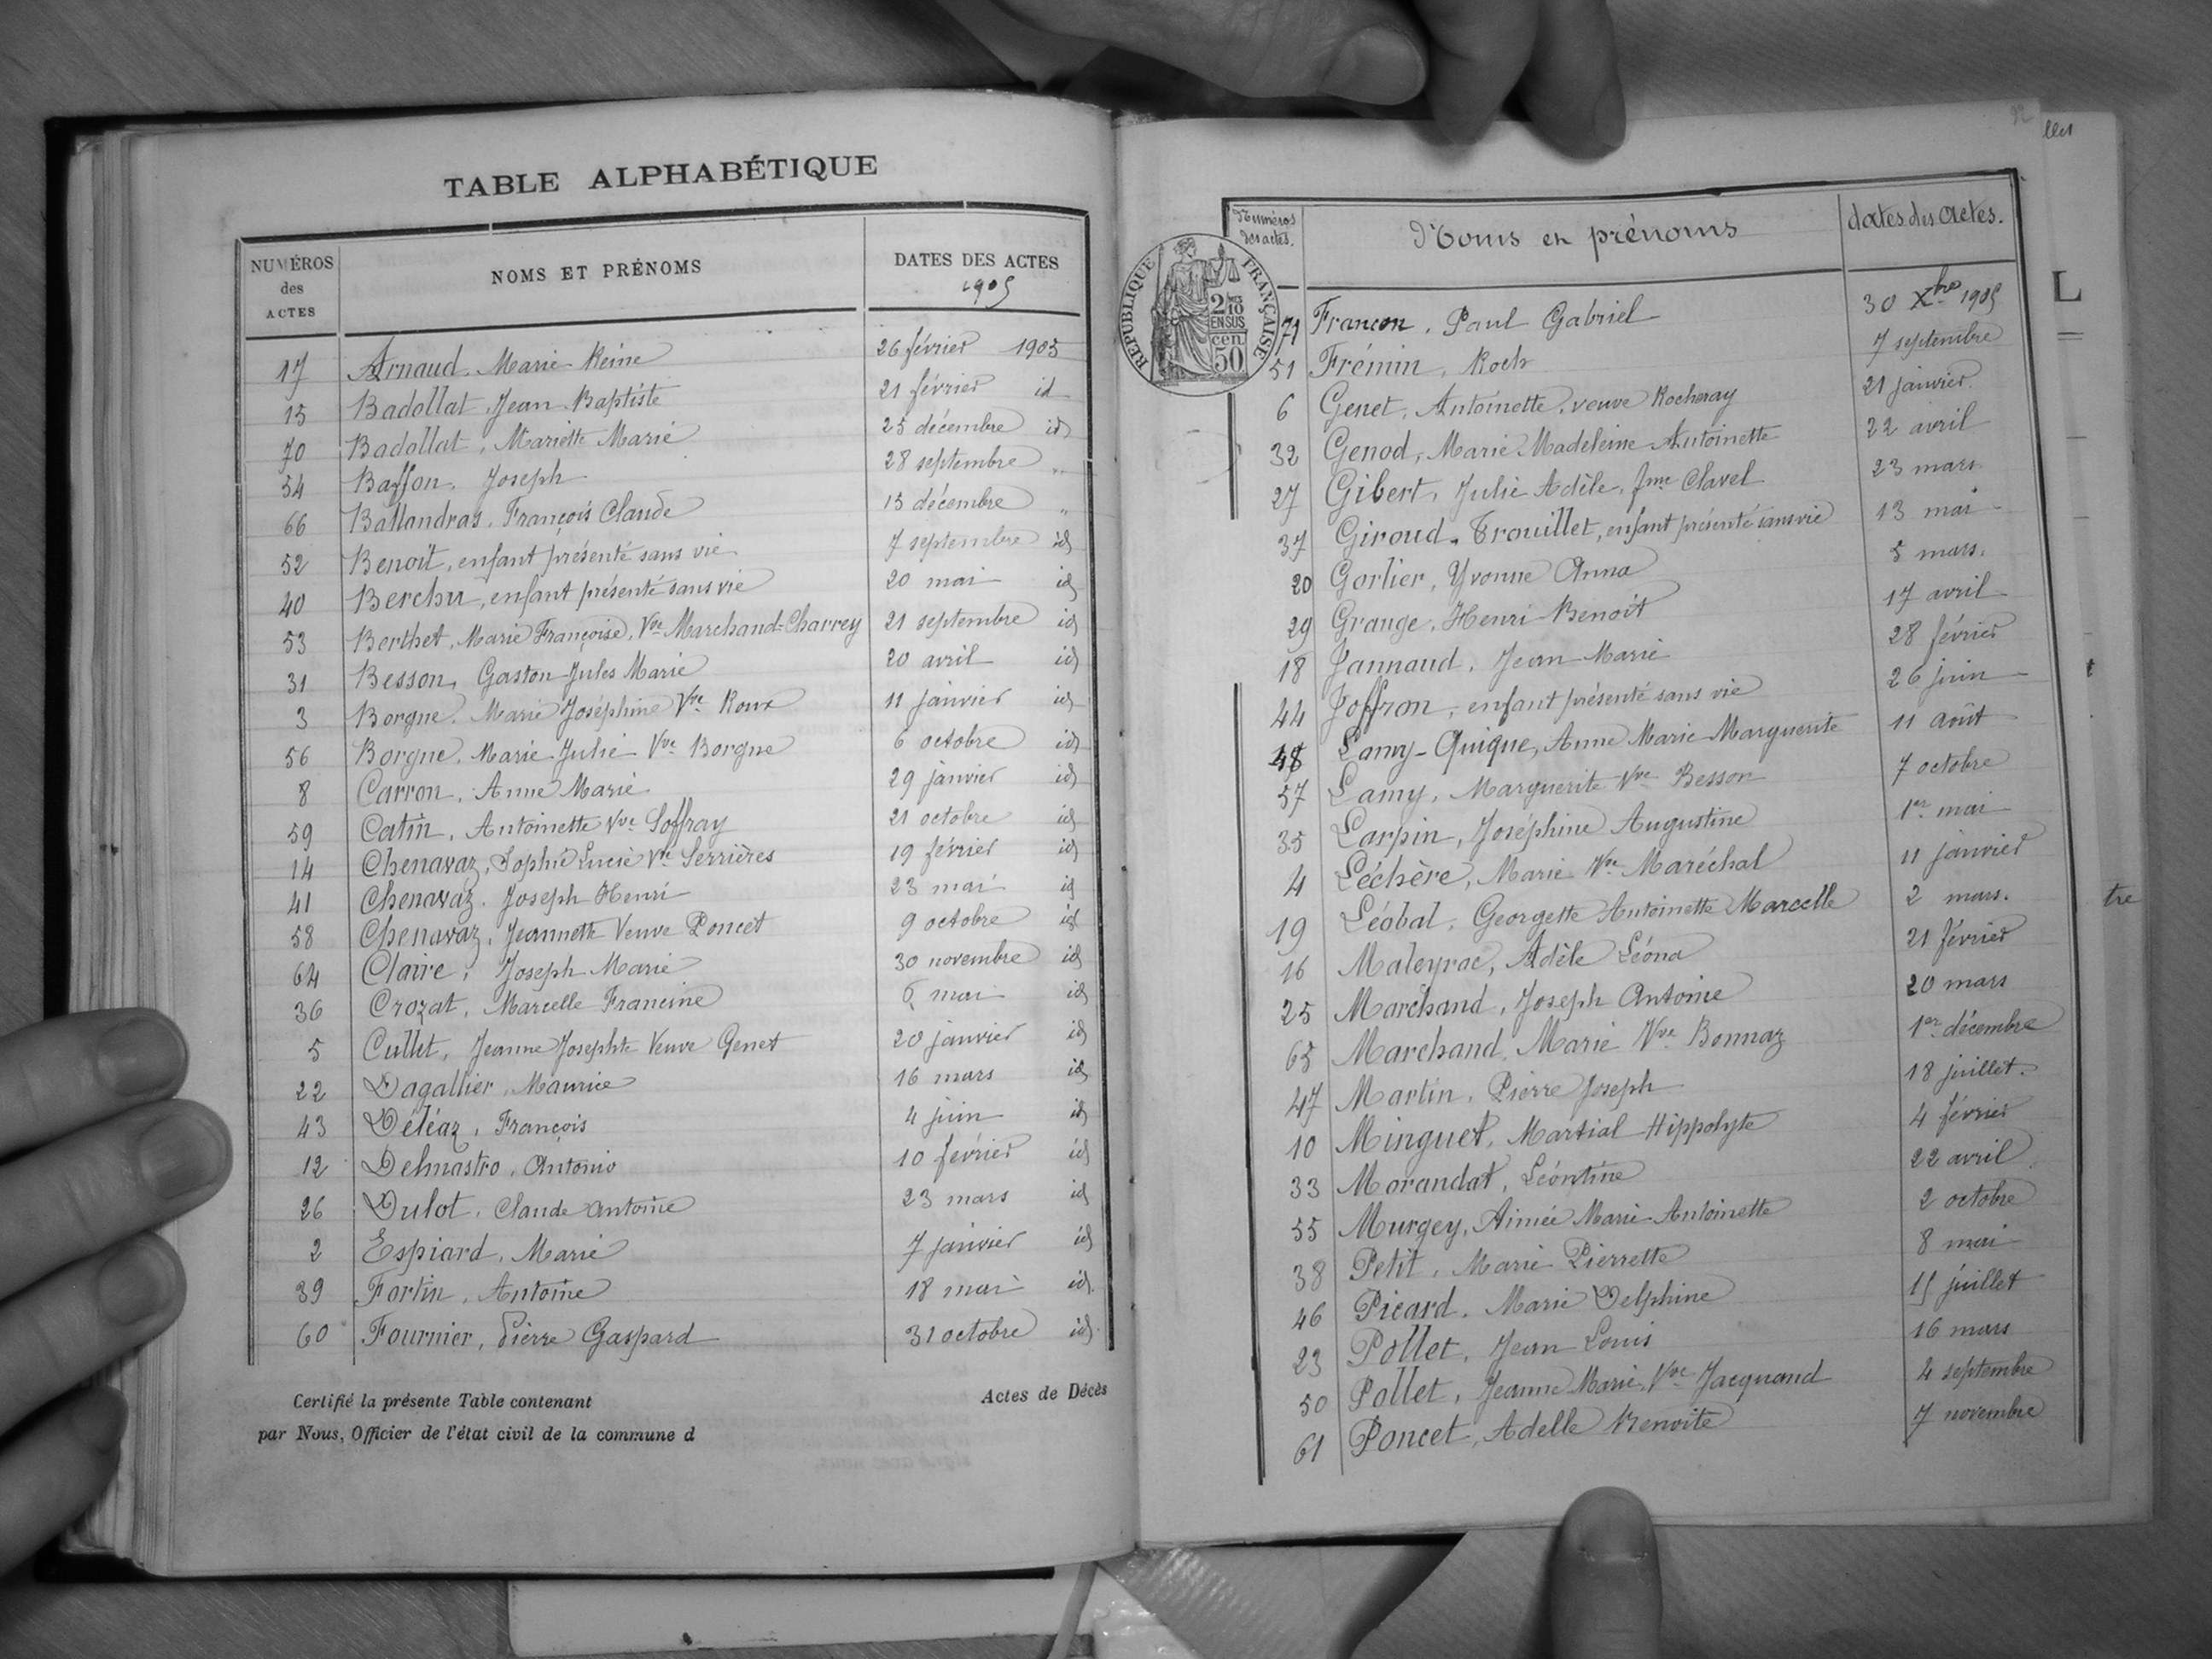 TABLE ALPHABÉTIQUE
NUMÉROS des ACTES NOMS ET PRÉNOMS DATES DES ACTES 1905
17 Arnaud, Marie Reine 26 février 1905
15 Badollat, Jean Baptiste 21 février id
70 Badollat, Mariette Marie 25 décembre id
54 Baffon, Joseph 28 septembre "
66 Ballandras, François Claude 13 décembre "
52 Benoit, enfant présenté sans vie 7 septembre id
40 Berchu, enfant présenté sans vie 20 mai id
53 Berthet, Marie Françoise, Vve Marchand-Charrey 21 septembre id
31 Besson, Gaston Jules Marie 20 avril id
3 Borgne, Marie Joséphine Vve Roux 11 janvier id
56 Borgne, Marie Julie Vve Borgne 6 octobre id
8 Carron, Anne Marie 29 janvier id
59 Catin, Antoinette Vve Soffray 21 octobre id
14 Chenavaz, Sophie Lucie Vve Serrières 19 février id
41 Chenavaz, Joseph Henri 23 mai id
58 Chenavaz, Jeannette Veuve Poncet 9 octobre id
64 Claire, Joseph Marie 30 novembre id
36 Crozat, Marcelle Francine 6 mai id
5 Cullet, Jeanne Josephte Veuve Genet 20 janvier id
22 Dagallier, Maurice 16 mars id
43 Déléaz, François 4 juin id
12 Delmastro, Antonio 10 février id
26 Dulot, Claude Antoine 23 mars id
2 Espiard, Marie 7 janvier id
39 Fortin, Antoine 18 mai id
60 Fournier, Pierre Gaspard 31 octobre id
Certifié la présente Table contenant Actes de Décès
par Nous, Officier de l'état civil de la commune d
92
Numéros des actes. Noms et prénoms dates des actes.
RÉPUBLIQUE FRANÇAISE
2/10 EN SUS
50 cen
71 Francon, Paul Gabriel 30 Xbre 1905
51 Frémin, Roch 7 septembre
6 Genet, Antoinette, veuve Rocheray 21 janvier
32 Genod, Marie Madeleine Antoinette 22 avril
27 Gibert, Julie Adèle, fme Clavel 23 mars
37 Giroud-Trouillet, enfant présenté sans vie 13 mai
20 Gorlier, Yvonne Anna 5 mars.
29 Grange, Henri Benoit 17 avril
18 Jannaud, Jean Marie 28 février
44 Joffron, enfant présenté sans vie 26 juin
48 Lamy-Quique, Anne Marie Marguerite 11 août
57 Lamy, Marguerite Vve Besson 7 octobre
35 Larpin, Joséphine Augustine 1er mai
4 Léchère, Marie Vve Maréchal 11 janvier
19 Léobal, Georgette Antoinette Marcelle 2 mars.
16 Maleyrac, Adèle Léona 21 février
25 Marchand, Joseph Antoine 20 mars
65 Marchand, Marie Vve Bonnaz 1er décembre
47 Martin, Pierre Joseph 18 juillet.
10 Minguet, Martial Hippolyte 4 février
33 Morandat, Léontine 22 avril
55 Murgey, Aimée Marie Antoinette 2 octobre
38 Petit, Marie Pierrette 8 mai
46 Picard, Marie Delphine 15 juillet
23 Pollet, Jean Louis 16 mars
50 Pollet, Jeanne Marie, Vve Jacquand 4 septembre
61 Poncet, Adelle Benoite 7 novembre
L
tre